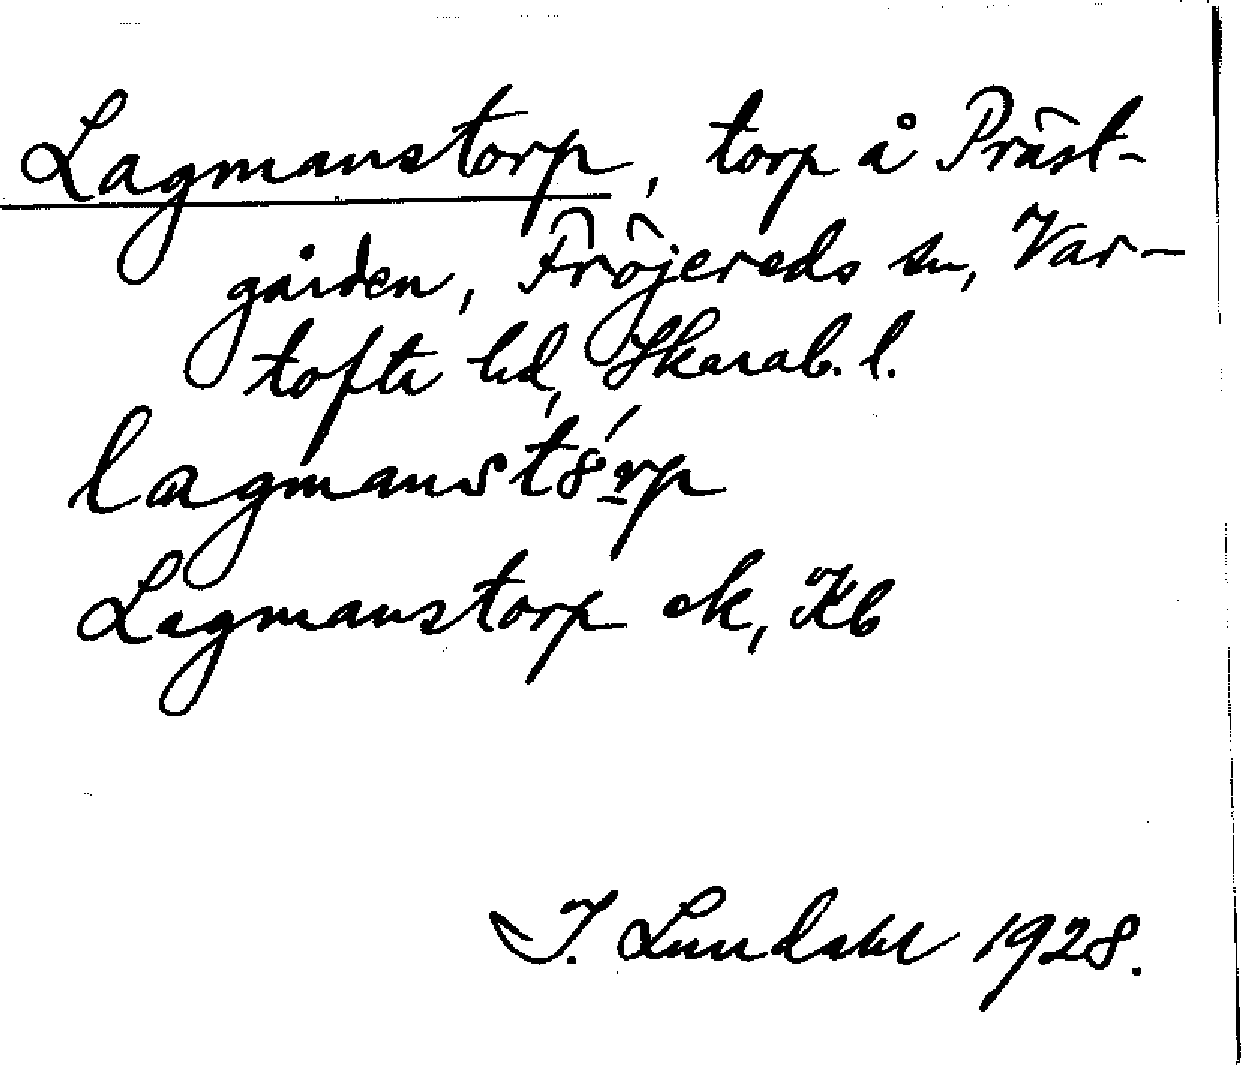 Lagmanstorp, torp å Präst-
gården, Fröjereds sn, Var-
tofta hd, Skarab. l.
lagmanstórp
Lagmanstorp ek, Kb
I. Lundahl 1928.